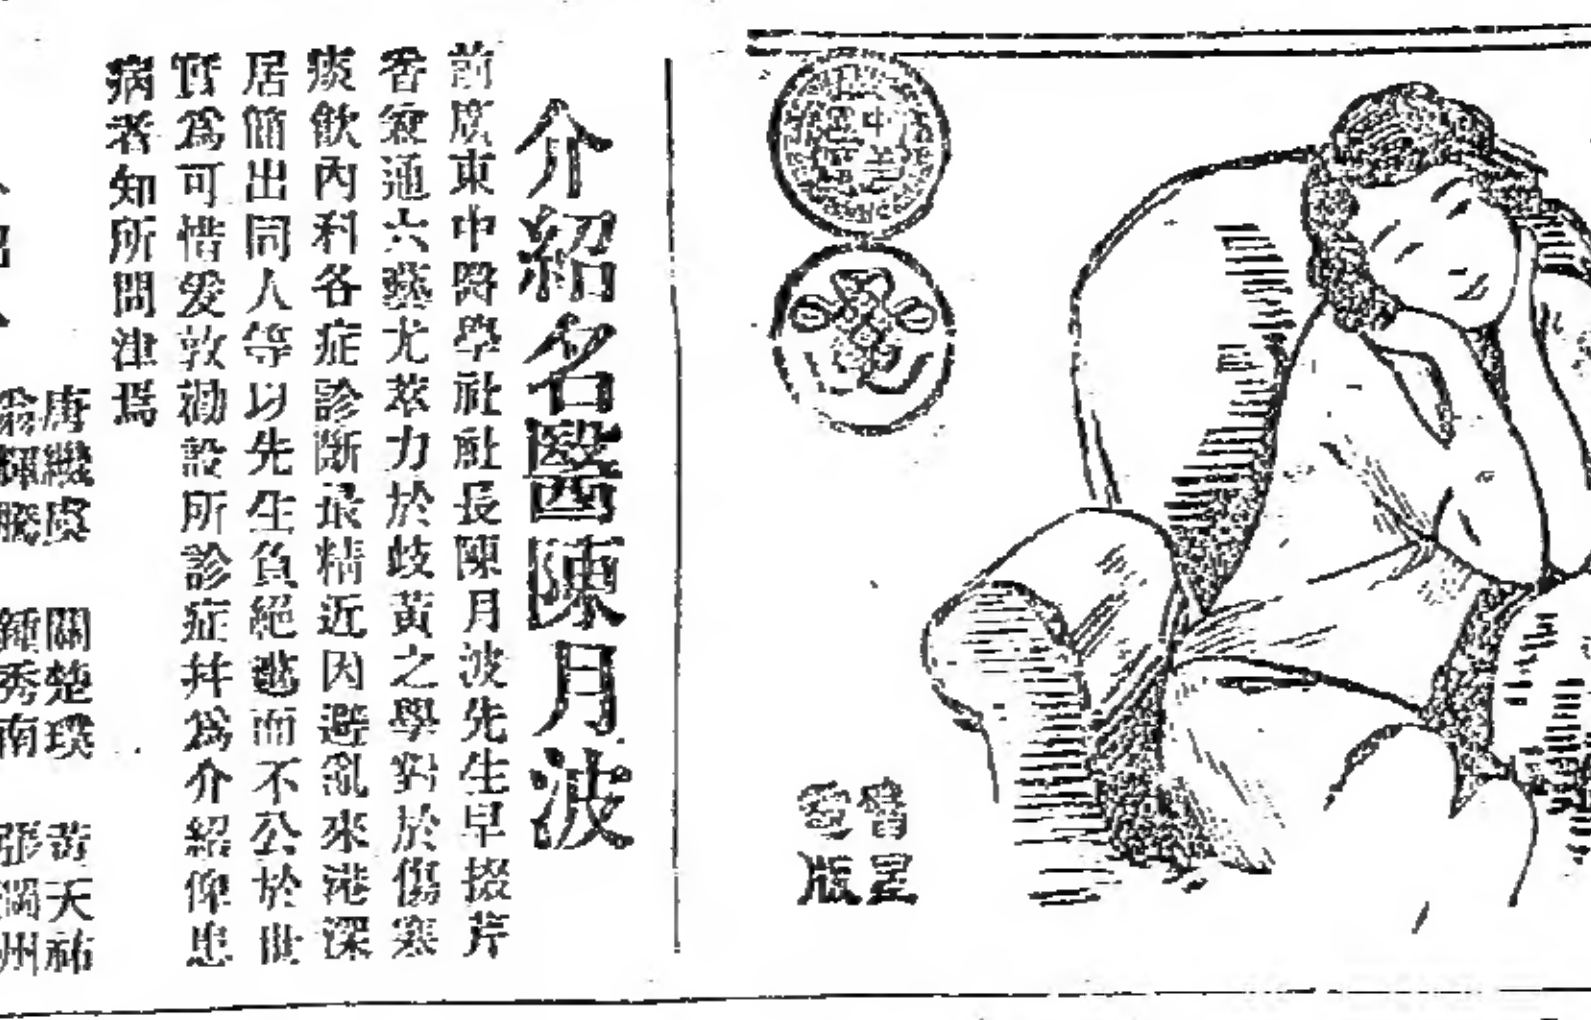 介紹名醫陳月波
前廣東中醫學社社長陳月波先生早掇芹
香衮通六藝尤萃力於歧黃之學對於傷寒
痰飲內科各症診斷最精近因避亂來港深
居簡出同人等以先生負絕藝而不公於世
實為可惜爰敦勸設所診症并為介紹俾患
病者知所問津焉
唐繼虞 關楚璞 黃天祐
翁輝騰 鍾秀南 張潤州
版